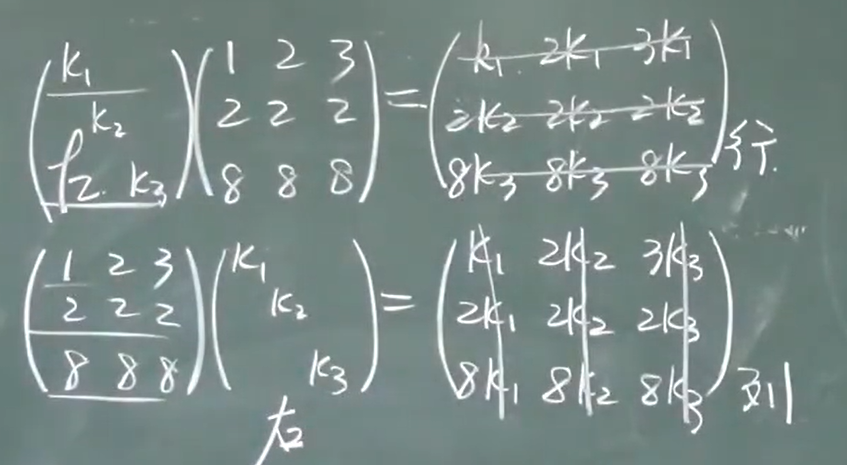 (k₁
k₂
左. k₃) (1 2 3
2 2 2
8 8 8) = (k₁ 2k₁ 3k₁
2k₂ 2k₂ 2k₂
8k₃ 8k₃ 8k₃) 行.
(1 2 3
2 2 2
8 8 8) (k₁
k₂
k₃) = (k₁ 2k₂ 3k₃
2k₁ 2k₂ 2k₃
8k₁ 8k₂ 8k₃) 列
右